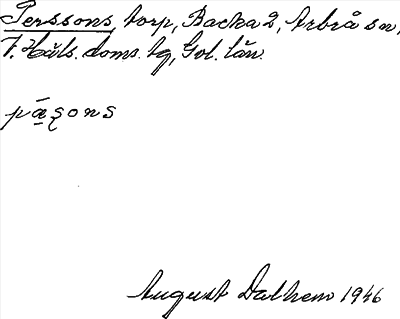 Perssons, torp, Backa 2, Arbrå sn,
V. Häls. doms. tg, Gvl. län.
pä̱ʂons
August Dalhem 1946